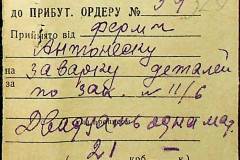 ДО ПРИБУТ. ОРДЕРУ №
Прийнято від ферми
Антонеску
на заварку деталей
по зак. №11/6
Двадцать одна мар.
21 – крб.